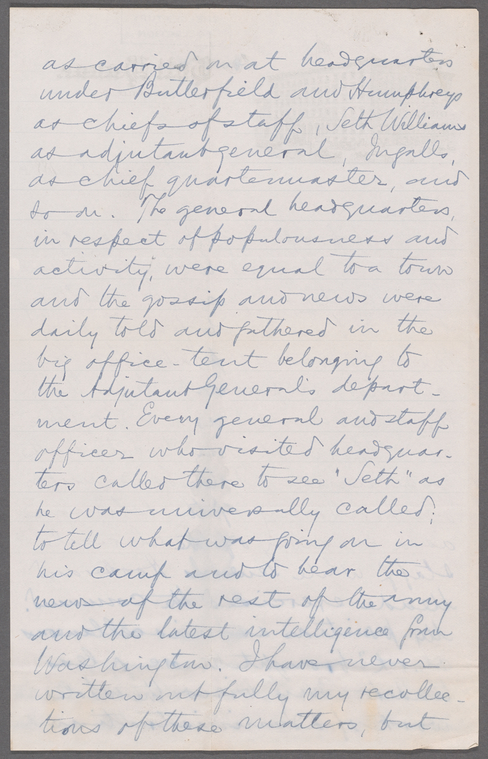 as carried on at headquarters
under Butterfield and Humphreys
as chiefs of staff, Seth Williams
as adjutant general, Ingalls,
as chief quartermaster, and
so on. The general headquarters,
in respect of populousness and
activity, were equal to a town
and the gossip and news were
daily told and gathered in the
big office-tent belonging to
the Adjutant General's depart-
ment. Every general and staff
officer who visited headquar-
ters called there to see "Seth" as
he was universally called;
to tell what was going on in
his camp and to hear the
news of the rest of the army
and the latest intelligence from
Washington. I have never
written out fully my recollec-
tions of these matters, but